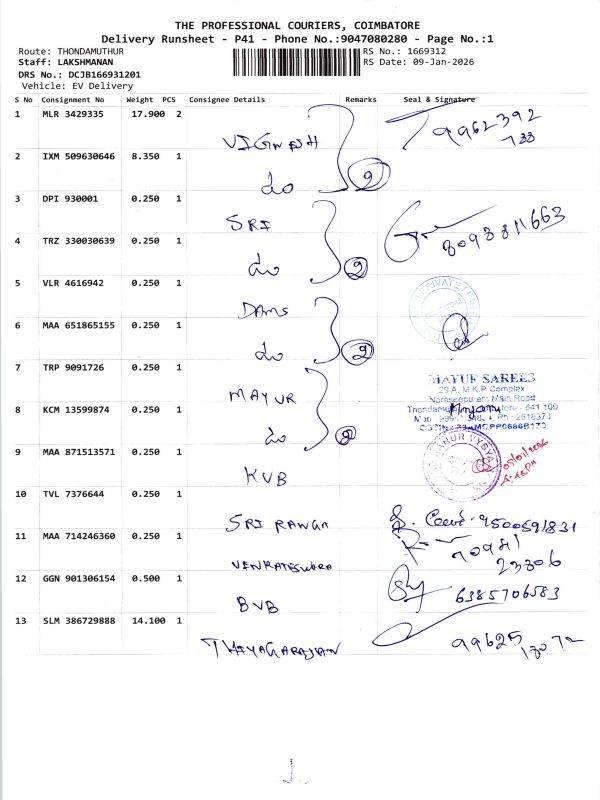 THE PROFESSIONAL COURIERS, COIMBATORE
Delivery Runsheet - P41 - Phone No.:9047080280 - Page No.:1
Route: THONDAMUTHUR RS No.: 1669312
Staff: LAKSHMANAN RS Date: 09-Jan-2026
DRS No.: DCJB166931201
Vehicle: EV Delivery
S No Consignment No Weight PCS Consignee Details Remarks Seal & Signature
1 MLR 3429335 17.900 2 VIGNESH 9962392
733
2 IXM 509630646 8.350 1 do 2
3 DPI 930001 0.250 1 SRI 8098811663
4 TRZ 330030639 0.250 1 do 2
5 VLR 4616942 0.250 1 DAMS
6 MAA 651865155 0.250 1 do 2
7 TRP 9091726 0.250 1 MAYUR
MAYUR SAREES
29 A, M.K.P Complex
Naraseepuram Main Road
8 KCM 13599874 0.250 1 do 2
9 MAA 871513571 0.250 1 KVB
10 TVL 7376644 0.250 1 SRI RANGA 9500591831
11 MAA 714246360 0.250 1 VENKATESWARA 70941
23306
12 GGN 901306154 0.500 1 BVB 6385706583
13 SLM 386729888 14.100 1 THIYAGARAJAN 99625